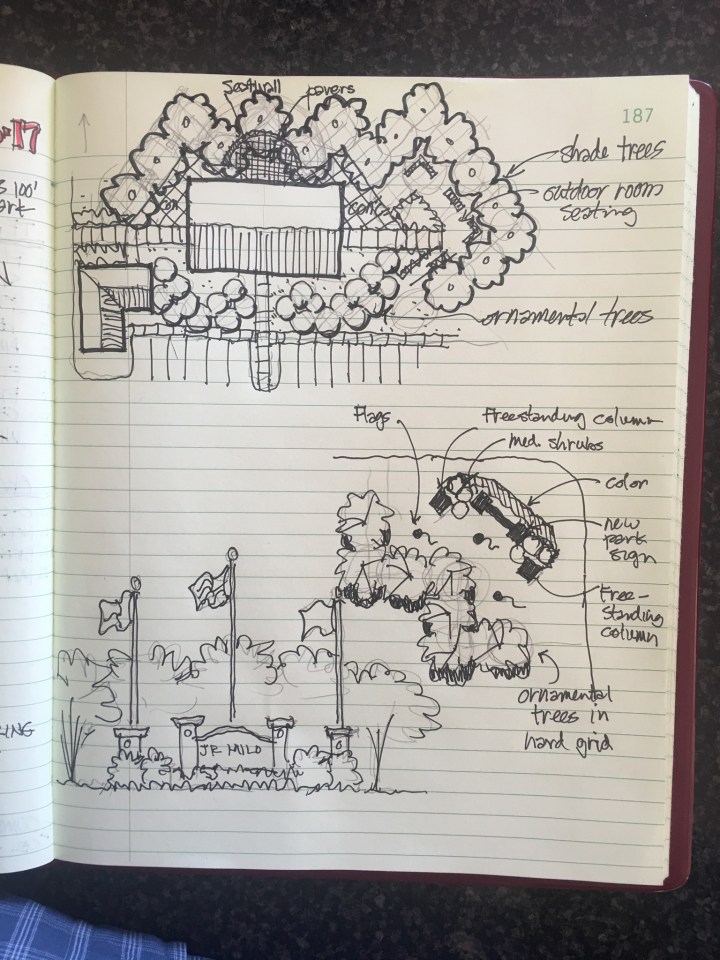 187
seatwall
pavers
shade trees
outdoor room
seating
conc
ornamental trees
17
100'
Flags
Freestanding column
med. shrubs
color
new
park
sign
Free-
standing
column
ornamental
trees in
hard grid
JR MILO